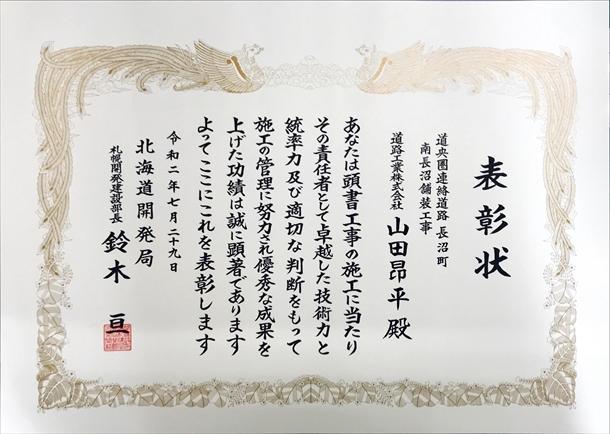 表彰状
道央圏連絡道路長沼町
南長沼舗装工事
道路工業株式会社
山田昂平殿
あなたは頭書工事の施工に当たり
その責任者として卓越した技術力と
統率力及び適切な判断をもって
施工の管理に努力され優秀な成果を
上げた功績は誠に顕著であります
よってここにこれを表彰します
令和二年七月二十九日
北海道開発局
札幌開発建設部長
鈴木亘